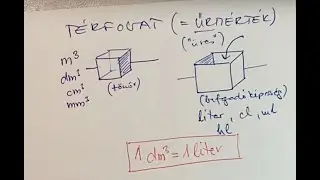 TÉRFOGAT (= ŰRMÉRTÉK)
("üres")
m³
dm³
cm³
mm³
(tömör)
(befogadóképesség)
liter, cl, ml
hl
1 dm³ = 1 liter